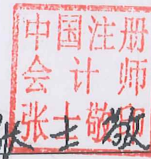 中国注册
会计师
张士敬
张士敬